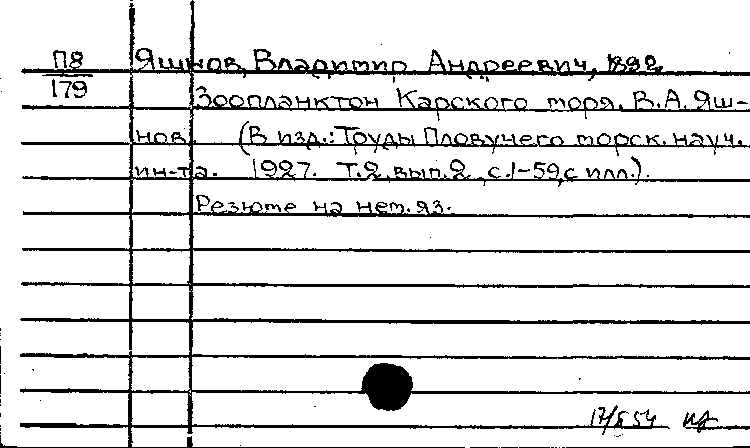 П8
179
Яшнов, Владимир Андреевич, 1892
Зоопланктон Карского моря. В.А. Яш-
нов. (В изд.: Труды Пловучего морск. науч.
ин-та. 1927. Т.2, вып.2, с.1-59, с илл.).
Резюме на нем. яз.
54